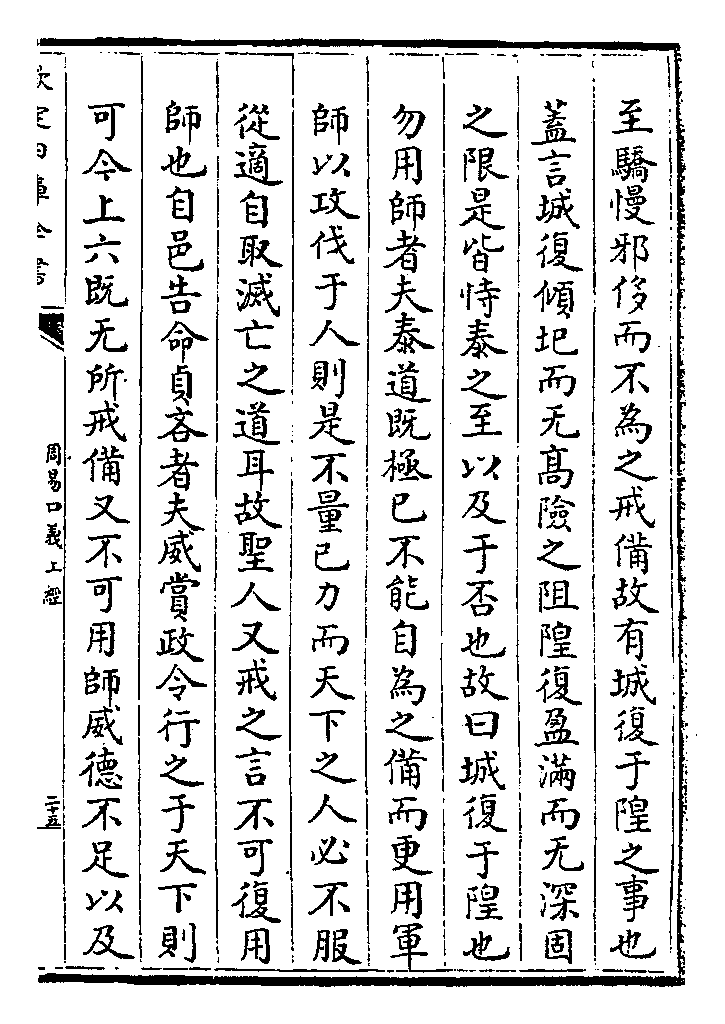 至驕慢邪侈而不為之戒備故有城復于隍之事也
蓋言城復傾圯而无髙險之阻隍復盈滿而无深固
之限是皆恃泰之至以及于否也故曰城復于隍也
勿用師者夫泰道既極已不能自為之備而更用軍
師以攻伐于人則是不量己力而天下之人必不服
從適自取滅亡之道耳故聖人又戒之言不可復用
師也自邑告命貞吝者夫威賞政令行之于天下則
可今上六既无所戒備又不可用師威德不足以及
欽定四庫全書
周易口義上經
二十五